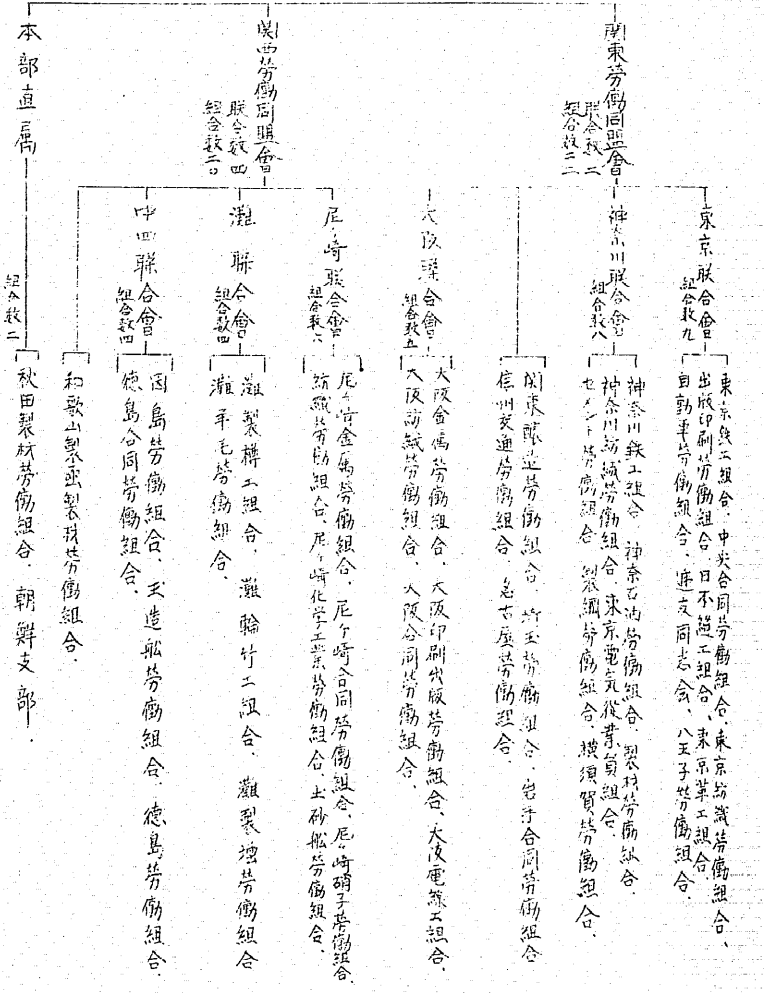 関東労働同盟會
聯合数二
組合数二二
東京联合會
組合数九
東京鉄工組合、中央合同労働組合、東京紡織労働組合、
出版印刷労働組合、日本縫工組合、東京革工組合、
自動車労働組合、逓友同志会、八王子労働組合、
神奈川联合會
組合数八
神奈川鉄工組合 神奈石油労働組合、製材労働組合、
神奈川紡織労働組合、東京電気従業員組合、
セメント労働組合 製鋼労働組合、横須賀労働組合、
関東醸造労働組合、埼玉労働組合、岩手合同労働組合
信州交通労働組合、名古屋労働組合、
関西労働同盟會
联合数四
組合数二〇
大阪聯合會
組合数五
大阪金属労働組合、大阪印刷出版労働組合、大阪電線工組合、
大阪紡績労働組合、大阪合同労働組合、
尼ヶ崎联合會
組合数六
尼ヶ崎金属労働組合、尼ヶ崎合同労働組合、尼ヶ崎硝子労働組合、
紡織労働組合、尼ヶ崎化学工業労働組合、土砂船労働組合、
灘聯合會
組合数四
灘製樽工組合、灘輪竹工組合、灘製壜労働組合
灘羊毛労働組合、
中四聯合會
組合数四
因島労働組合、玉造船労働組合、徳島労働組合、
徳島合同労働組合、
和歌山製函製材労働組合、
本部直属
組合数二
秋田製材労働組合、朝鮮支部、